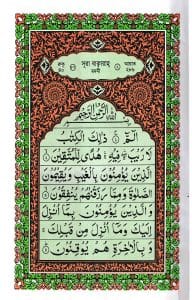 সূরা বাক্বারাহ্
রুকু ৪০ মদনী আয়াত ২৮৬
بِسْمِ اللّٰهِ الرَّحْمٰنِ الرَّحِيْمِ
الٓمّٓ ۚ ذٰلِكَ الْكِتٰبُ
لَا رَيْبَ ۛ فِيْهِ ۛ هُدًى لِّلْمُتَّقِيْنَ
الَّذِيْنَ يُؤْمِنُوْنَ بِالْغَيْبِ وَيُقِيْمُوْنَ
الصَّلٰوةَ وَمِمَّا رَزَقْنٰهُمْ يُنْفِقُوْنَ
وَالَّذِيْنَ يُؤْمِنُوْنَ بِمَآ اُنْزِلَ
اِلَيْكَ وَمَآ اُنْزِلَ مِنْ قَبْلِكَ
وَبِالْاٰخِرَةِ هُمْ يُوْقِنُوْنَ